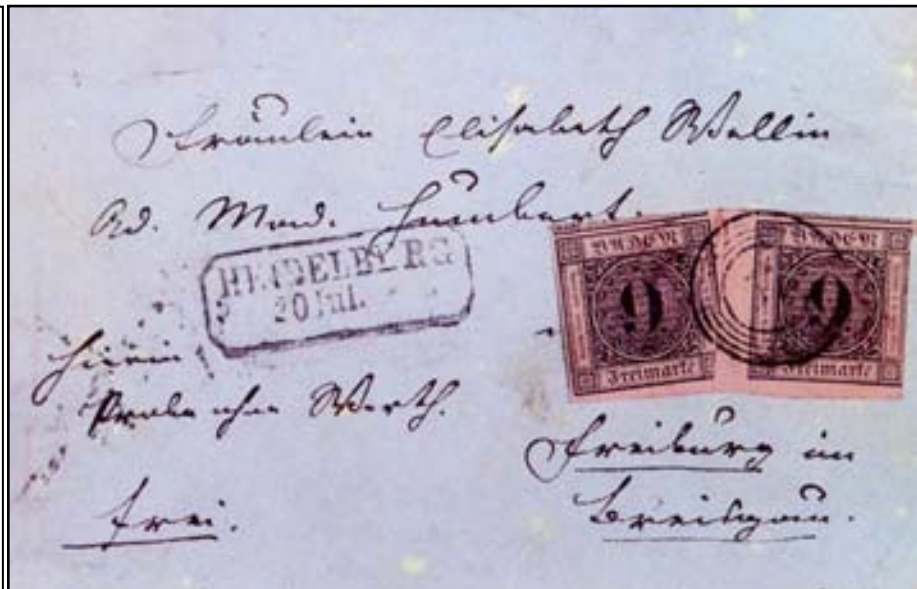 Fräulein Elisabeth Wallin
Ad. Mad. Humbert.
HEIDELBERG
20 Jul.
BADEN
9
Freimarke
BADEN
9
Freimarke
Hierin
Probe ohne Werth.
Freiburg im
Breisgau.
frei.